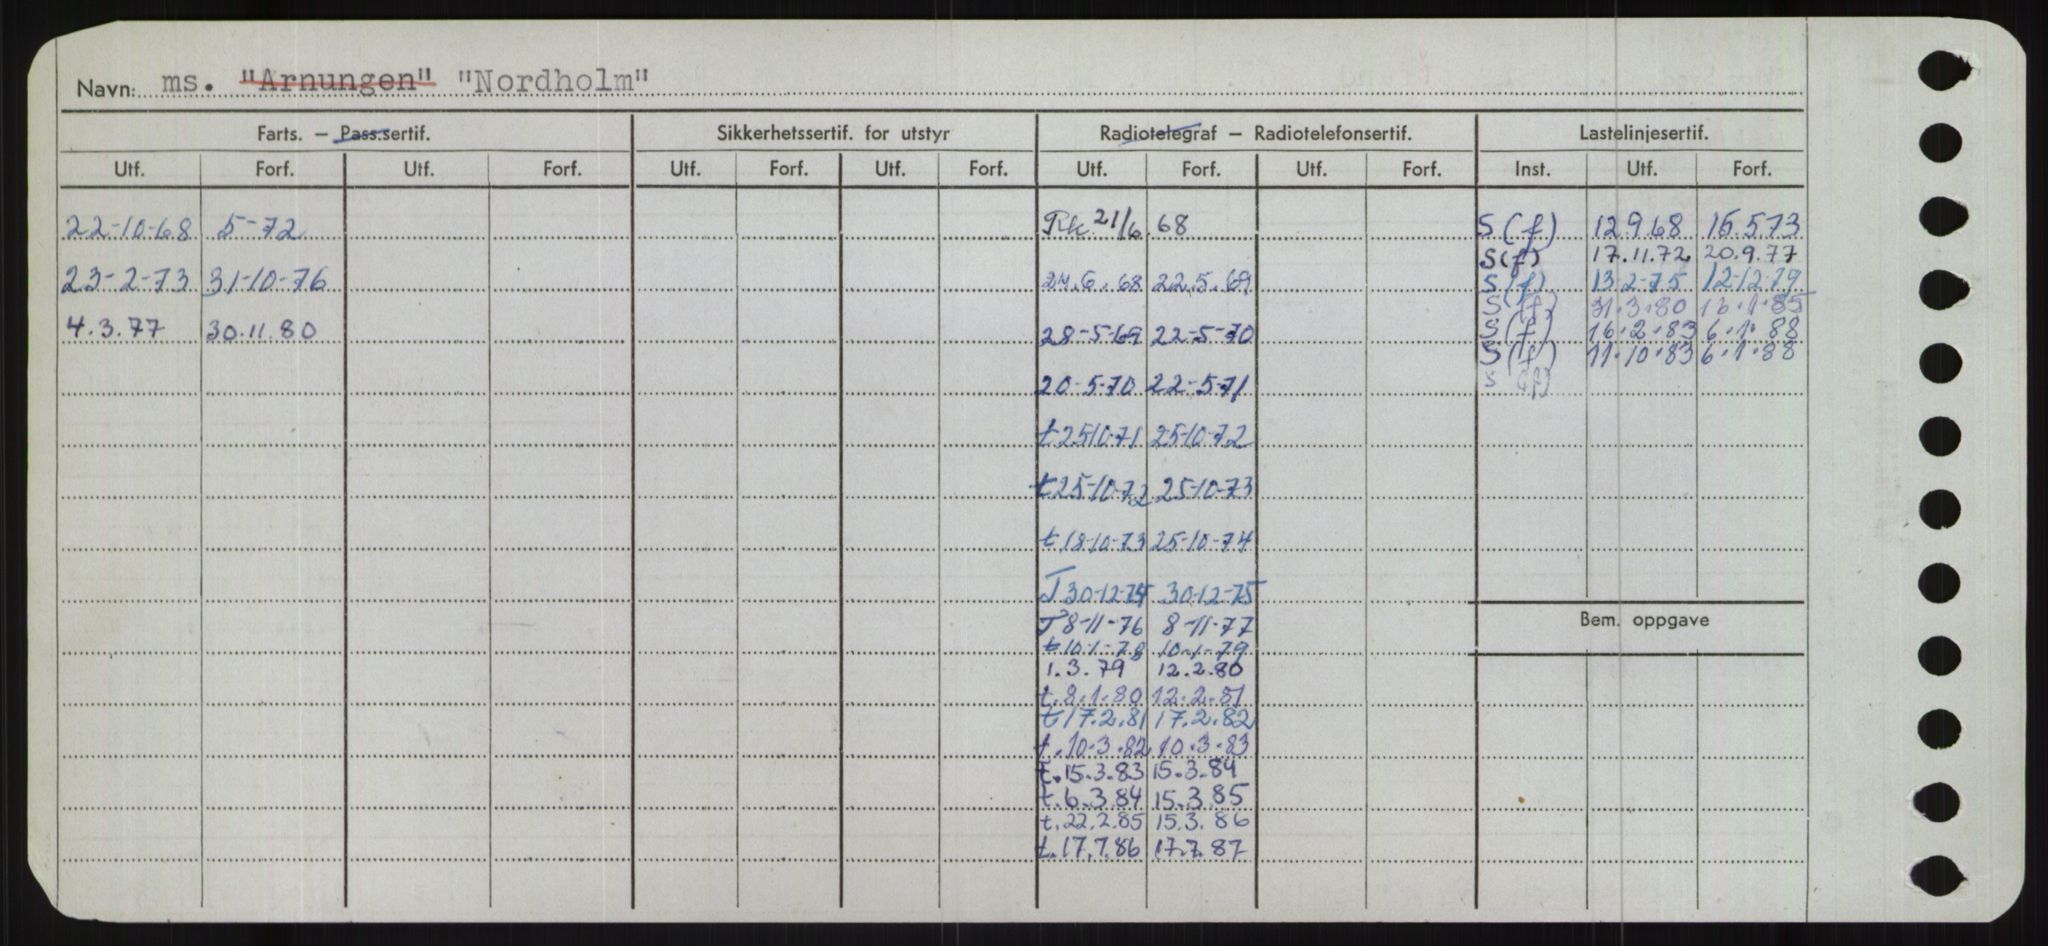 Navn: ms. "Arnungen" "Nordholm"
Farts. – Pass.sertif. Sikkerhetssertif. for utstyr Radiotelegraf – Radiotelefonsertif. Lastelinjesertif.
Utf. Forf. Utf. Forf. Utf. Forf. Utf. Forf. Utf. Forf. Utf. Forf. Inst. Utf. Forf.
22-10-68 5-72 21/6 68 S(f) 12.9.68 15.5.73
S(f) 17.11.72 20.9.77
23-2-73 31-10-76 24.6.68 22.5.69 S(f) 13-2-75 12-12-79
S(f) 31.3.80 13.1.85
4.3.77 30.11.80 28-5-69 22-5-70 S(f) 16.2.83 6.1.88
S(f) 11.10.83 6.1.88
20-5-70 22-5-71 S (f)
t 25-10-71 25-10-72
t 25-10-72 25-10-73
t 18-10-73 25-10-74
T 30-12-74 30-12-75
T 8-11-76 8-11-77
Bem. oppgave
t 10-1-78 10-1-79
1.3.79 12.2.80
t. 8.1.80 12.2.81
t 17.2.81 17.2.82
t. 10.3.82 10.3.83
t. 15.3.83 15.3.84
t. 6.3.84 15.3.85
t. 22.2.85 15.3.86
t. 17.7.86 17.7.87